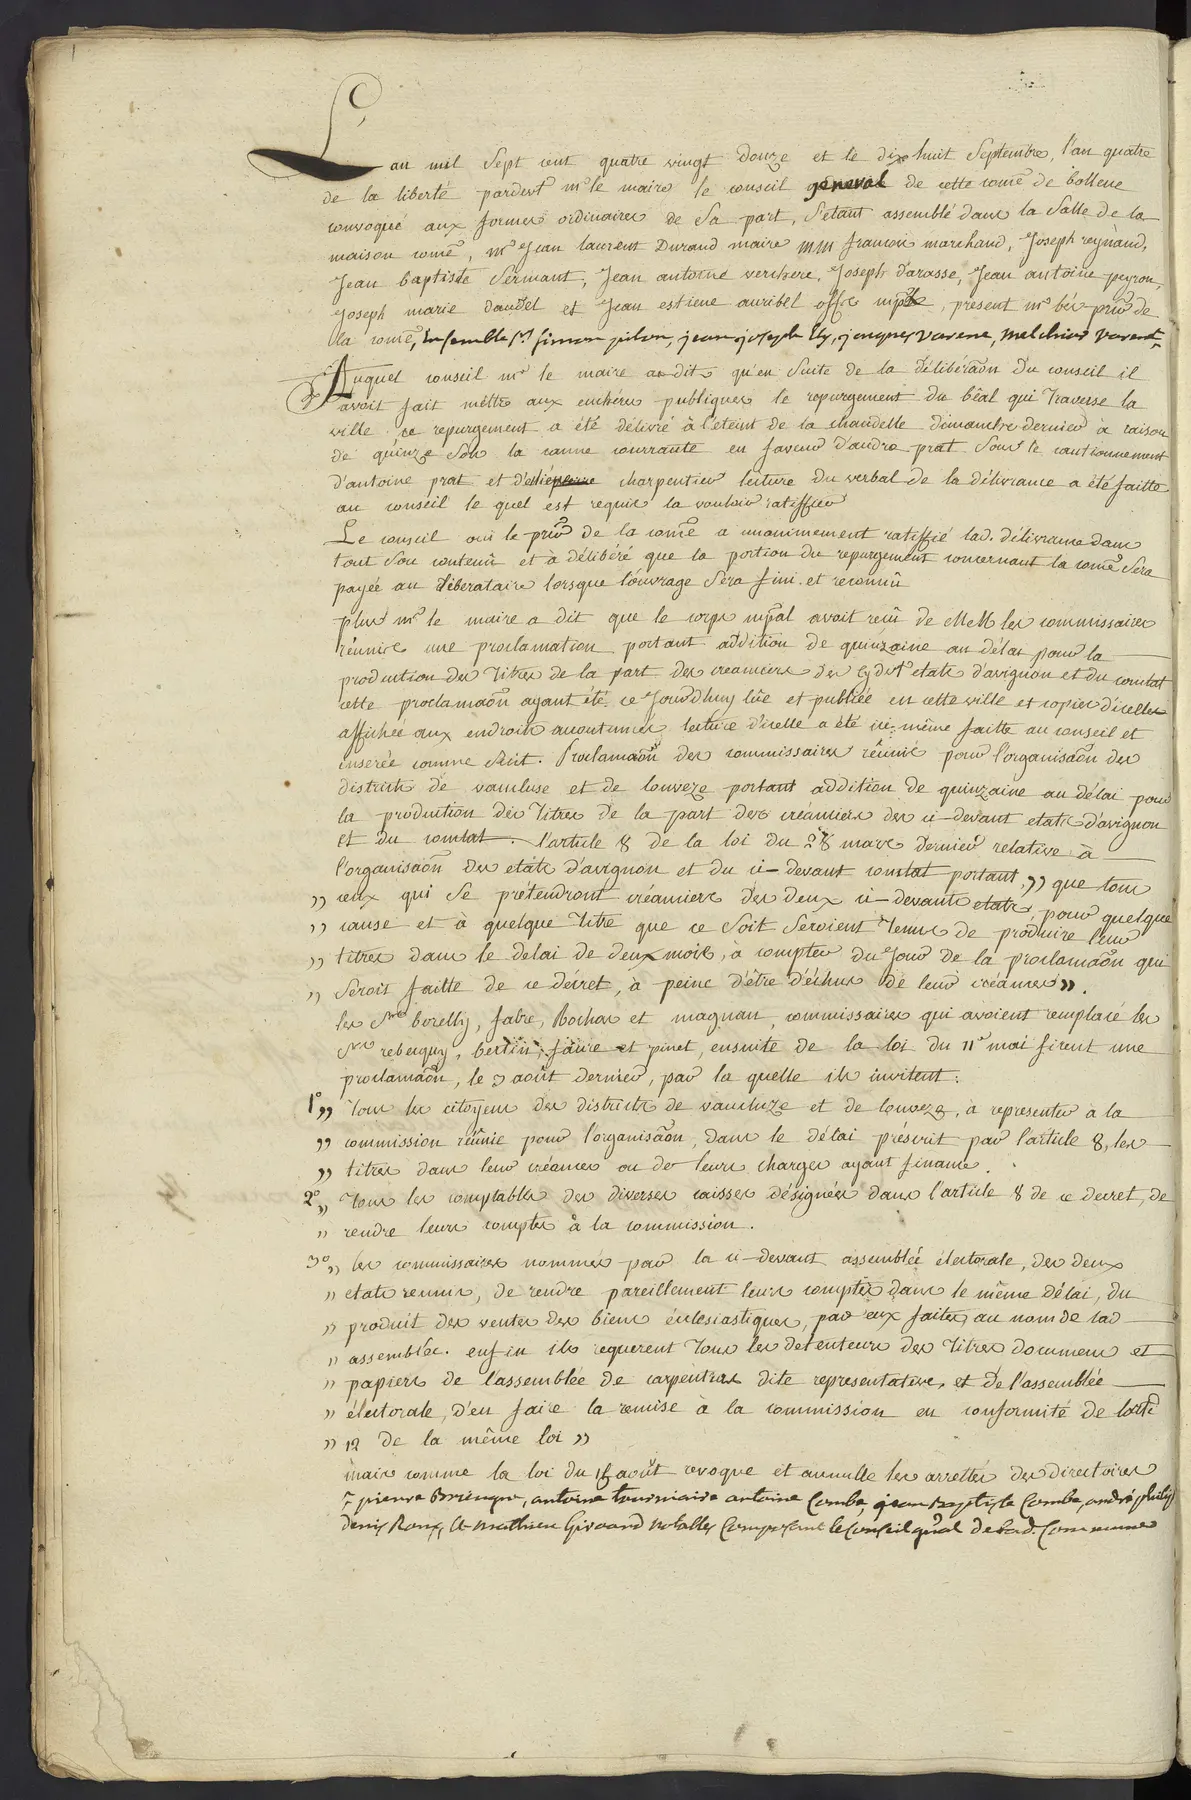 L'an mil Sept cent quatre vingt Douze et le dix huit Septembre, l'an quatre
de la liberté pardevt mr le maire le conseil géneral de cette comē de bollene
convoquée aux formes ordinaires de Sa part, S'etant assemblé dans la Salle de la
maison comē, mr Jean laurent Durand maire MM francois marchand, Joseph reynaud,
Jean baptiste Sermant, Jean antoine verchere, Joseph d'arasse, Jean antoine peyron,
Joseph marie daudel et Jean estiene auribel offrs mpx, présent mr prr de
la comē, Ensemble Srs Simon pilon, jean joseph Ely, jacques varene, melchior varent
Auquel conseil mr le maire a dit qu'en Suite de la délibéraōn Du conseil il
avoit fait mêttre aux enchéres publiques le repurgement du béal qui Traverse la
ville, ce repurgement a été délivré à l'éteint de la chandelle dimanche dernier a raison
de quinze Sols la canne courrante en faveur d'andre prat Sous le cautionnement
d'antoine prat et charpentier lecture du verbal de la délivrance a été faitte
au conseil le quel est requis la vouloir ratiffier
Le conseil oui le prr de la comē a unanimement ratiffié lad. délivrance dans
tout Son contenû et à délibéré que la portion du repurgement concernant la comē Sera
payée au déliberataire lorsque l'ouvrage Sera fini et reconnû
plus mr le maire a dit que le corps mpal avoit reçû de MM les commissaires
réunis une proclamation portant addition de quinzaine au délai pour la
production des Titres de la part des creanciers des cy dvt etats d'avignon et du comtat
cette proclamaōn ayant été ce Jourd'huy lûe et publiée en cette ville et copies d'icelles
affichée aux endroits accoutumés lecture d'icelle a été ici même faitte au conseil et
insérée comme Suit. Proclamaōn des commissaires réunis pour l'organisaōn des
districts de vaucluse et de louveze portant addition de quinzaine au délai pour
la production des Titres de la part des créanciers des ci-devant etats d'avignon
et du comtat. l'article 8 de la loi du 28 mars dernier relative à
l'organisaōn des etats d'avignon et du ci-devant comtat portant " que tous
" ceux qui Se prétendront créanciers des deux ci-devants etats, pour quelque
" cause et à quelque Titre que ce Soit Seroient Tenus de produire leurs
" titres dans le delai de deux mois, à compter du Jour de la proclamaōn qui
" Seroit faitte de ce décret, à peine d'être d'échus de leurs créances ".
les Srs borelly, fabre, Rochas et magnan, commissaires qui avoient remplacé les
Srs rebecquy, bertin, faure et pinet, ensuite de la loi du 11e mai firent une
proclamaōn, le 3 août dernier, par la quelle ils invitent:
1° " Tous les citoyens des districts de vaucluze et de louveze, à representer à la
" commission réûnie pour l'organisaōn, dans le délai préscrit par l'article 8, les
" titres dans leurs créances ou de leurs charges ayant finance.
2° " Tous les comptables des diverses caisses désignées dans l'article 8 de ce decret, de
" rendre leurs comptes à la commission.
3° " les commissaires nommés par la ci-devant assemblée électorale, des deux
" etats réunis, de rendre pareillement leurs comptes dans le même délai, du
" produit des ventes des biens écclesiastiques, par eux faites, au nom de lad
" assemblée. enfin ils requerent Tous les detenteurs des Titres documens et
" papiers de l'assemblée de carpentras dite representative, et de l'assemblée
" électorale, d'en faire la remise à la commission en conformité de l'arte
" 12 de la même loi "
mais comme la loi du août revoque et annulle les arrettés des directoires
pierre antoine tourniaire antoine Combe, jean Baptiste Combe, andré philip
denis Roux, et mathieu Giraud notables Composant le Conseil gral de lad. Commune